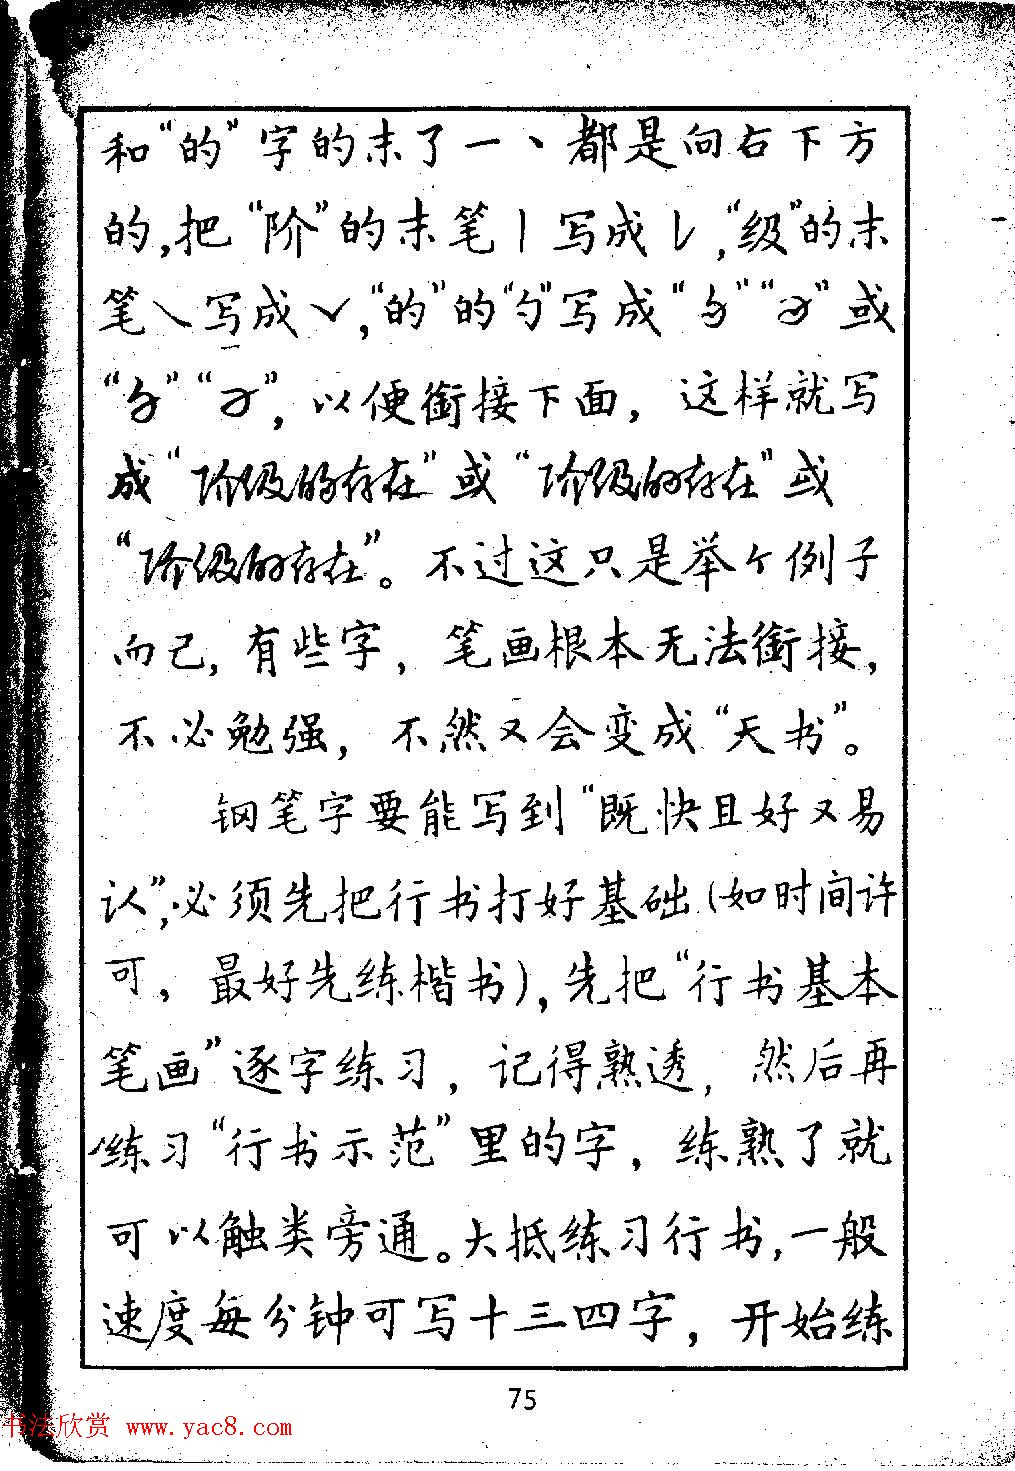 和“的”字的末了一、都是向右下方
的,把“阶”的末笔丨写成㇄,“级”的末
笔㇏写成✓,“的”的“勺”写成“”“”或
“”“”,以便銜接下面,这样就写
成“阶级的存在”或“阶级的存在”或
“阶级的存在”。不过这只是举个例子
而已,有些字,笔画根本无法銜接,
不必勉强,不然又会变成“天书”。
钢笔字要能写到“既快且好又易
认”,必须先把行书打好基础(如时间许
可,最好先练楷书),先把“行书基本
笔画”逐字练习,记得熟透,然后再
练习“行书示范”里的字,练熟了就
可以触类旁通。大抵练习行书,一般
速度每分钟可写十三四字,开始练
75
书法欣赏 www.yac8.com